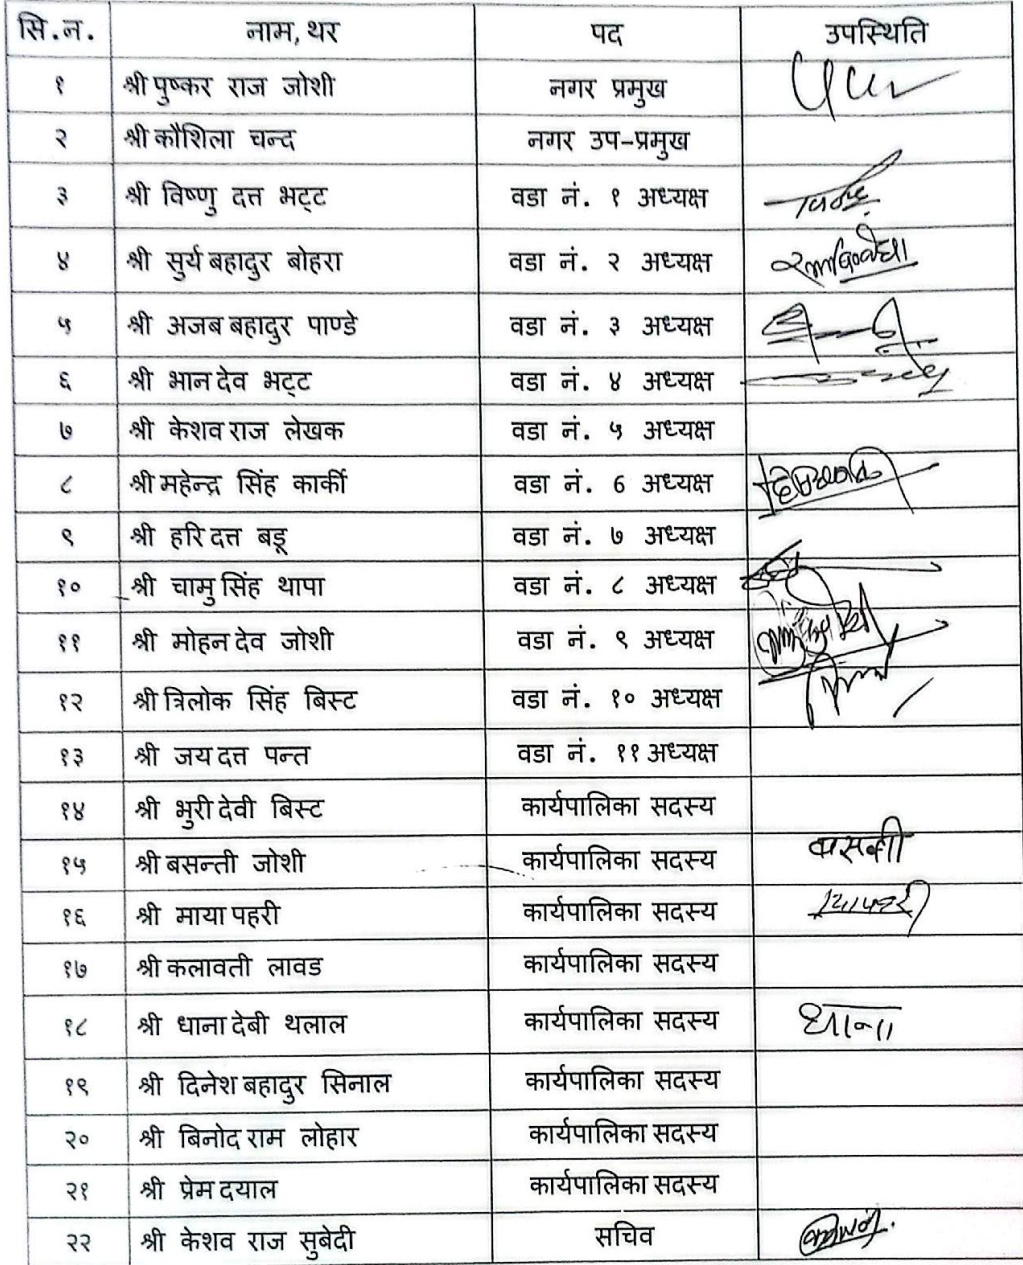 सि.न. नाम, थर पद उपस्थिति
१ श्री पुष्कर राज जोशी नगर प्रमुख
२ श्री कौशिला चन्द नगर उप-प्रमुख
३ श्री विष्णु दत्त भट्ट वडा नं. १ अध्यक्ष
४ श्री सुर्य बहादुर बोहरा वडा नं. २ अध्यक्ष
५ श्री अजब बहादुर पाण्डे वडा नं. ३ अध्यक्ष
६ श्री भान देव भट्ट वडा नं. ४ अध्यक्ष
७ श्री केशव राज लेखक वडा नं. ५ अध्यक्ष
८ श्री महेन्द्र सिंह कार्की वडा नं. 6 अध्यक्ष
९ श्री हरि दत्त बडू वडा नं. ७ अध्यक्ष
१० श्री चामु सिंह थापा वडा नं. ८ अध्यक्ष
११ श्री मोहन देव जोशी वडा नं. ९ अध्यक्ष
१२ श्री त्रिलोक सिंह बिस्ट वडा नं. १० अध्यक्ष
१३ श्री जय दत्त पन्त वडा नं. ११ अध्यक्ष
१४ श्री भुरी देवी बिस्ट कार्यपालिका सदस्य
१५ श्री बसन्ती जोशी कार्यपालिका सदस्य
१६ श्री माया पहरी कार्यपालिका सदस्य
१७ श्री कलावती लावड कार्यपालिका सदस्य
१८ श्री धाना देबी थलाल कार्यपालिका सदस्य धाना
१९ श्री दिनेश बहादुर सिनाल कार्यपालिका सदस्य
२० श्री बिनोद राम लोहार कार्यपालिका सदस्य
२१ श्री प्रेम दयाल कार्यपालिका सदस्य
२२ श्री केशव राज सुबेदी सचिव